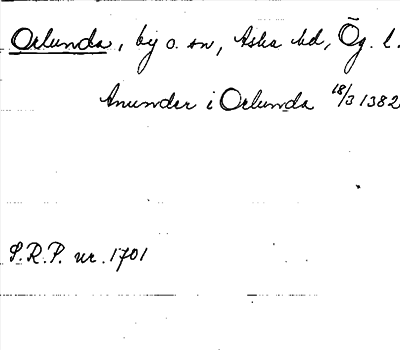 Orlunda, by o. sn, Aska hd, Ög. l.
Anunder i Orlunda 18/3 1382
S.R.P. nr. 1701